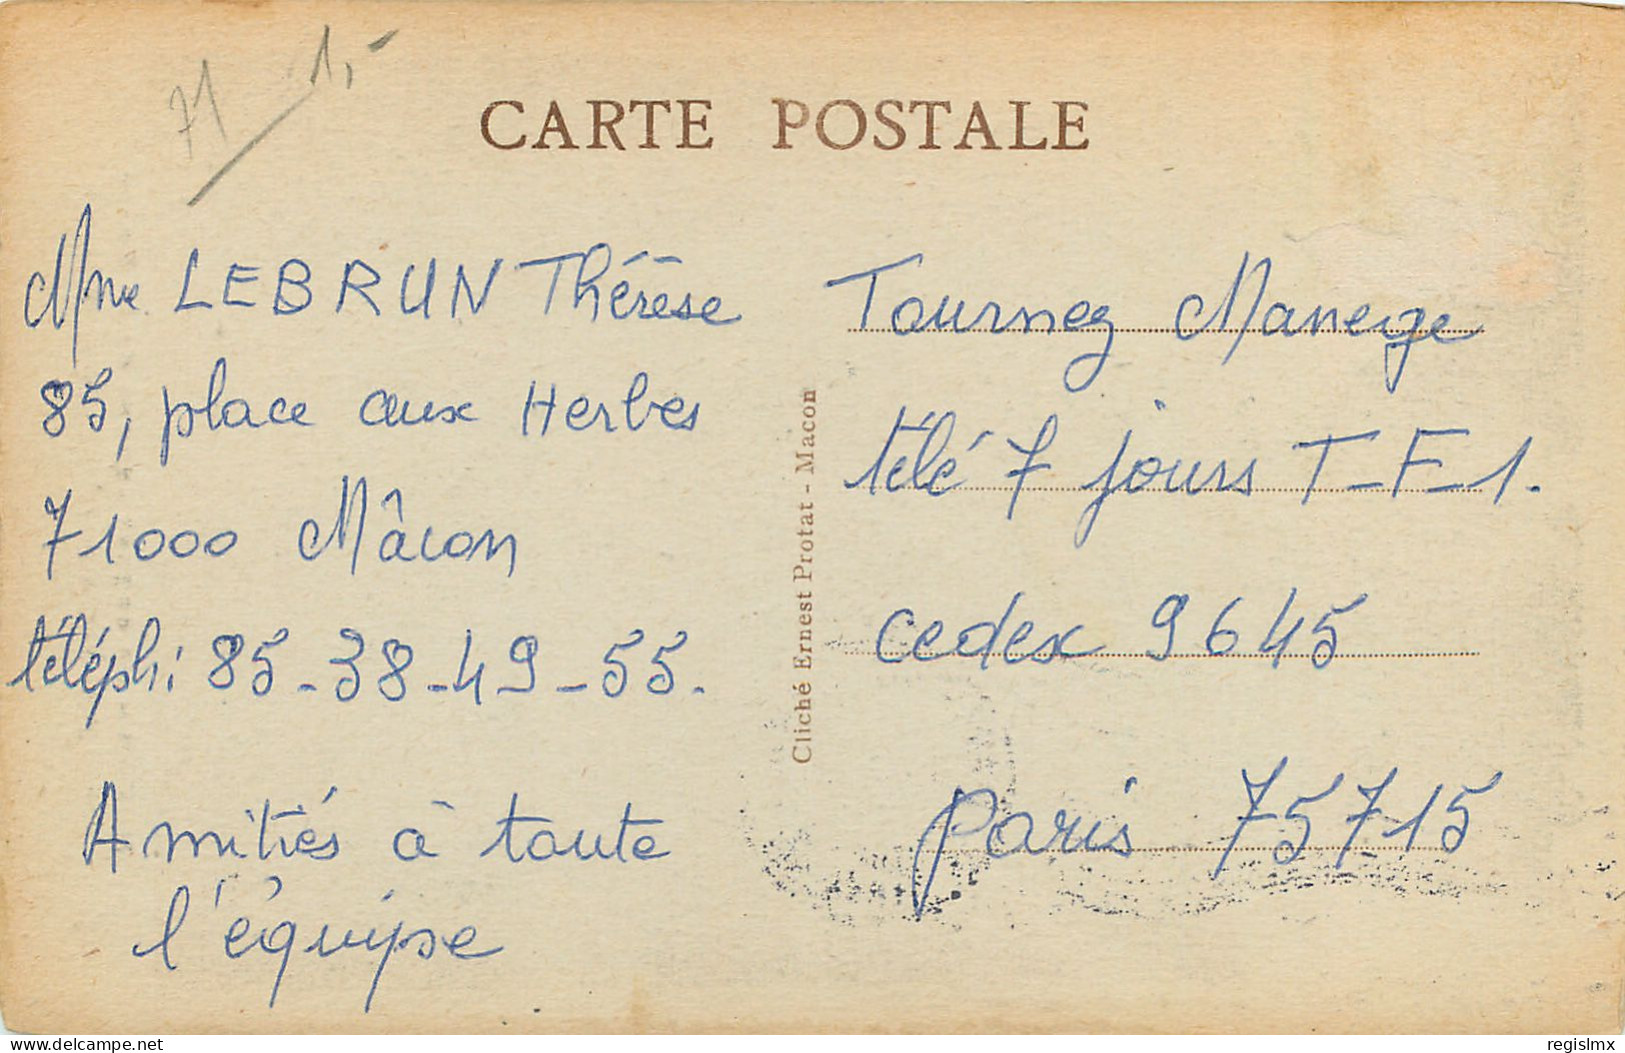 71 1,-
CARTE POSTALE
Mme LEBRUN Thérèse
85, place aux Herbes
71000 Mâcon
téléph: 85-38-49-55.
Amitiés à toute
l'équipe
Cliché Ernest Protat - Macon
Tournez Manège
télé 7 jours T-F-1.
Cedex 9645
Paris 75715
www.delcampe.net
regislmx